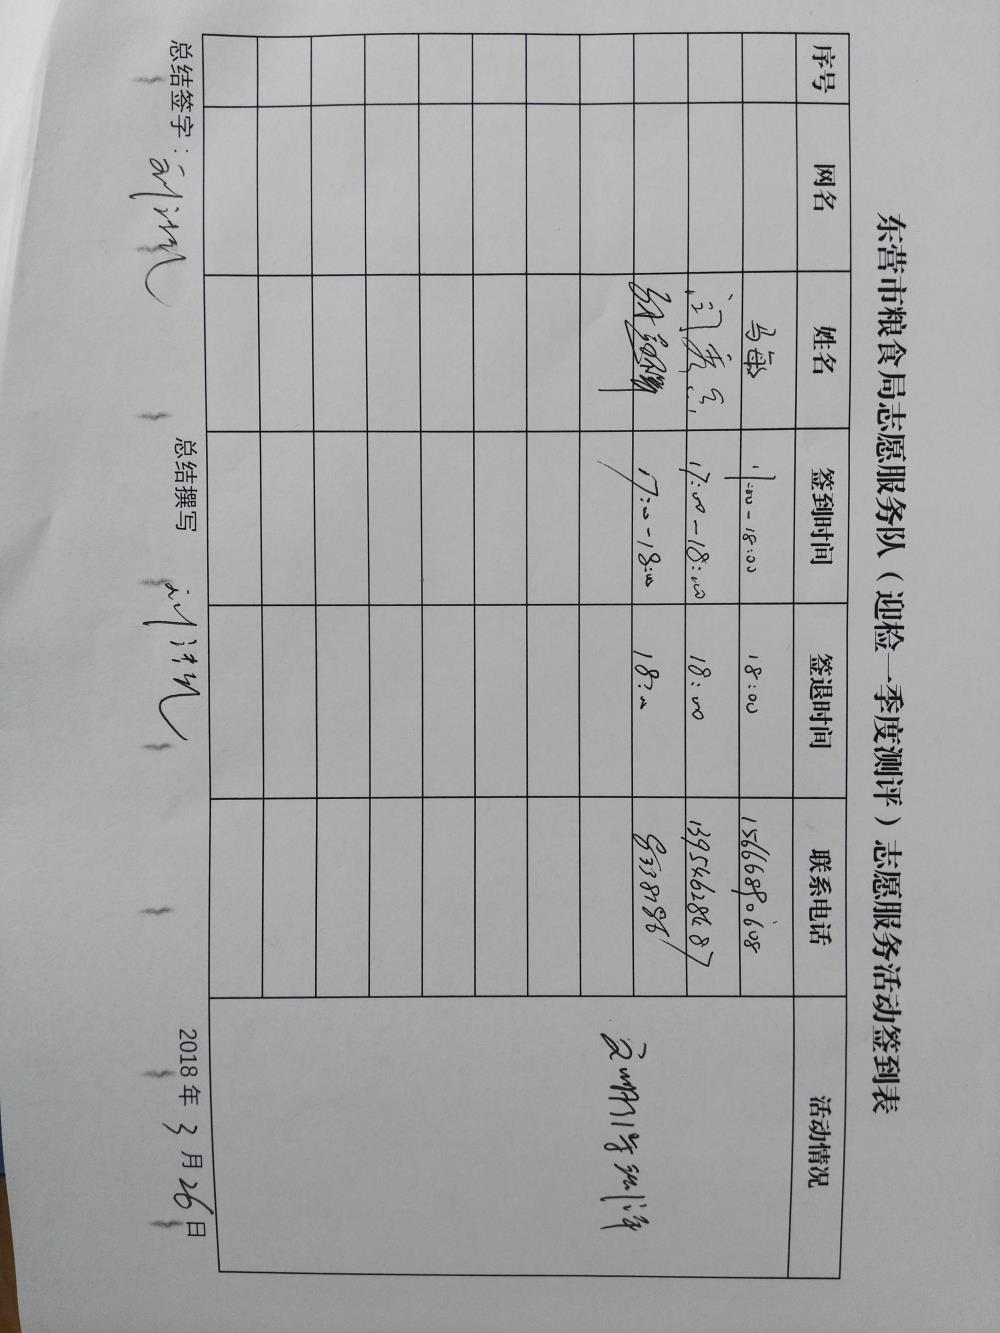 东营市粮食局志愿服务队（迎检一季度测评）志愿服务活动签到表
序号 网名 姓名 签到时间 签退时间 联系电话 活动情况
马敏 17:00-18:00 18:00 15666890608
闫秀 17:00-18:00 18:00 13954628687
17:00-18:00 18:00 8338786
测评
总结签字： 总结撰写 2018年3月26日